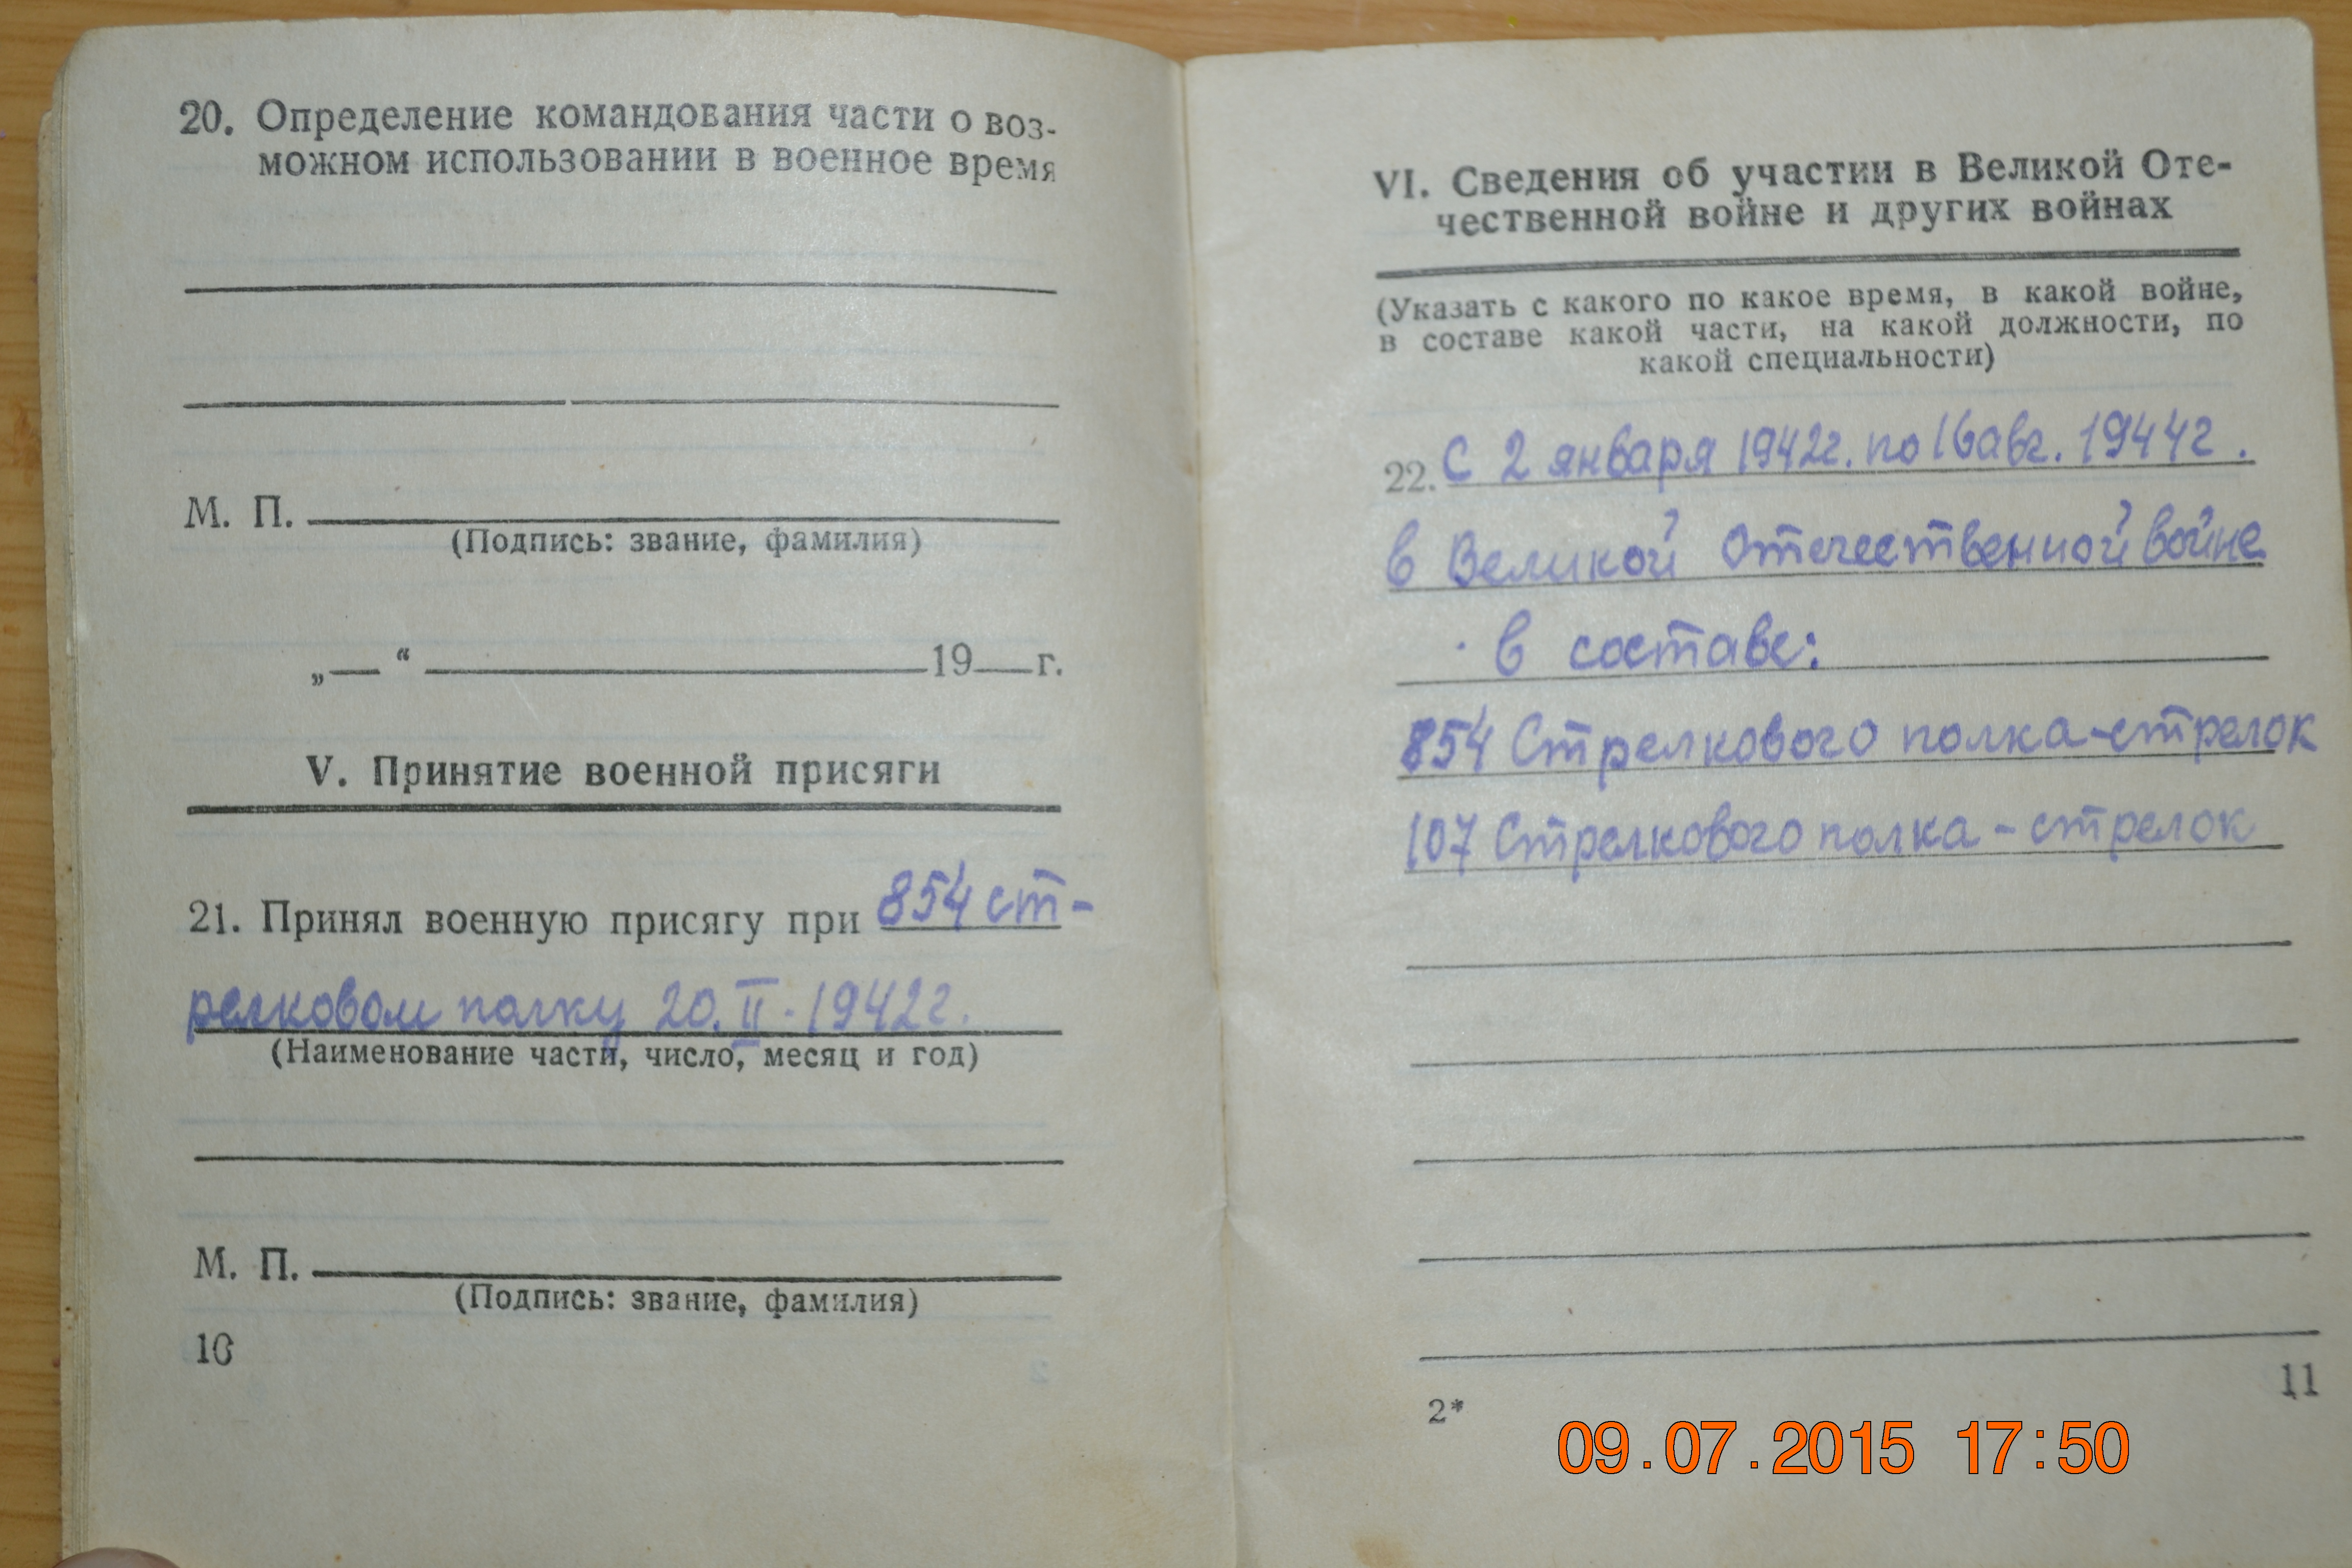 20. Определение командования части о воз-
можном использовании в военное время
М. П.
(Подпись: звание, фамилия)
„— “ 19 г.
V. Принятие военной присяги
21. Принял военную присягу при 854 ст-
релковом полку 20.II.1942г.
(Наименование части, число, месяц и год)
М. П.
(Подпись: звание, фамилия)
10
VI. Сведения об участии в Великой Оте-
чественной войне и других войнах
(Указать с какого по какое время, в какой войне,
в составе какой части, на какой должности, по
какой специальности)
22. С 2 января 1942г. по 16 авг. 1944г.
в Великой Отечественной войне
в составе:
854 Стрелкового полка-стрелок
107 Стрелкового полка - стрелок
2*
11
09.07.2015 17:50